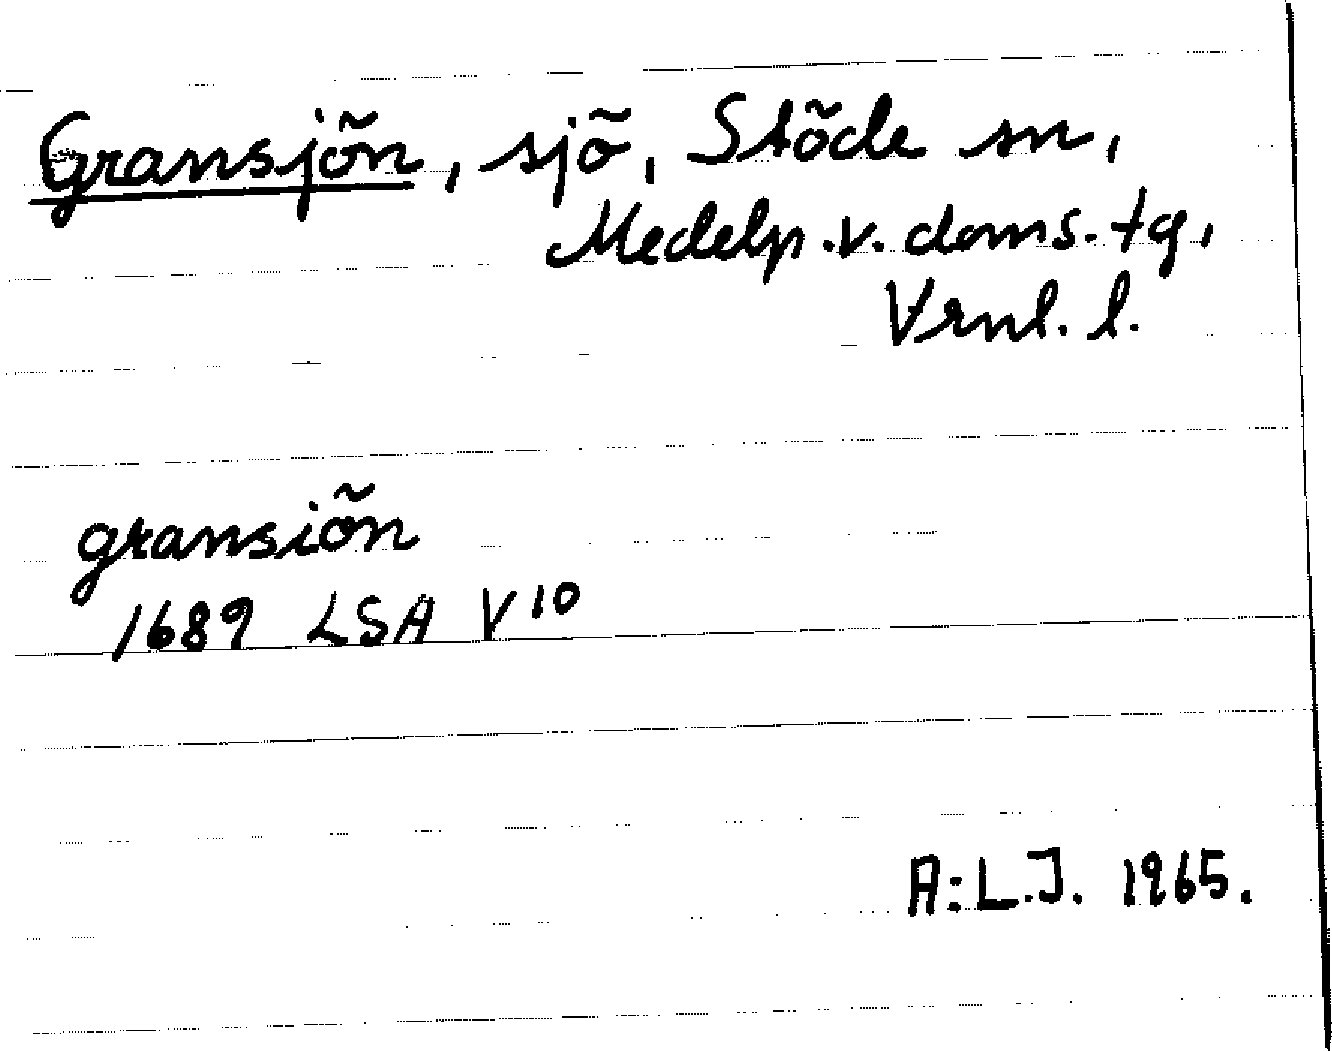 Gransjön, sjö, Stöde sn,
Medelp. v. doms. tg,
Vrnl. l.
gransiön
1689 LSA V 10
A:L.J. 1965.